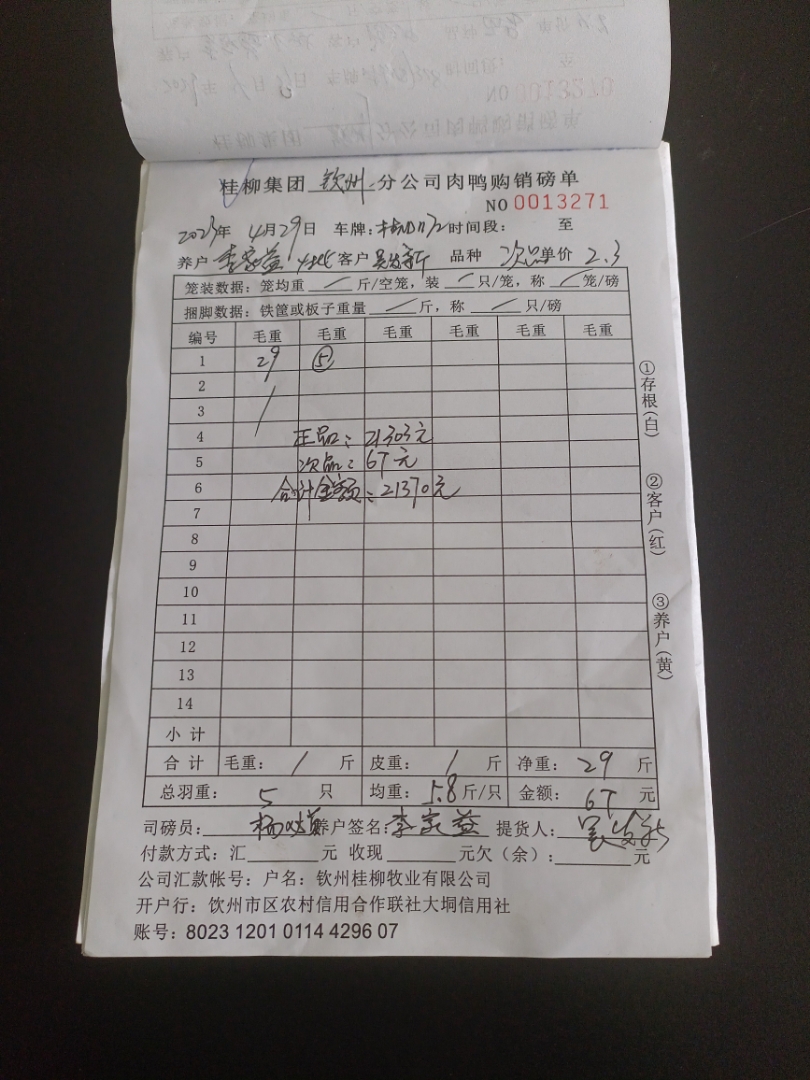 桂柳集团 钦州 分公司肉鸭购销磅单
NO 0013271
2023年 4月29日 车牌: 时间段: 至
养户 李家益 客户 吴发新 品种 次品 单价 2.3
笼装数据: 笼均重 / 斤/空笼, 装 / 只/笼, 称 / 笼/磅
捆脚数据: 铁筐或板子重量 / 斤, 称 / 只/磅
编号 毛重 毛重 毛重 毛重 毛重 毛重
1 29 ⑤
2
3
4 正品: 21303元
5 次品: 67元
6 合计金额: 21370元
7
8
9
10
11
12
13
14
小 计
合 计 毛重: / 斤 皮重: / 斤 净重: 29 斤
总羽重: 5 只 均重: 5.8 斤/只 金额: 67 元
司磅员: 养户签名: 李家益 提货人: 吴发新
付款方式: 汇 元 收现 元欠(余): 元
公司汇款帐号: 户名: 钦州桂柳牧业有限公司
开户行: 钦州市区农村信用合作联社大垌信用社
账号: 8023 1201 0114 4296 07
①存根(白)
②客户(红)
③养户(黄)